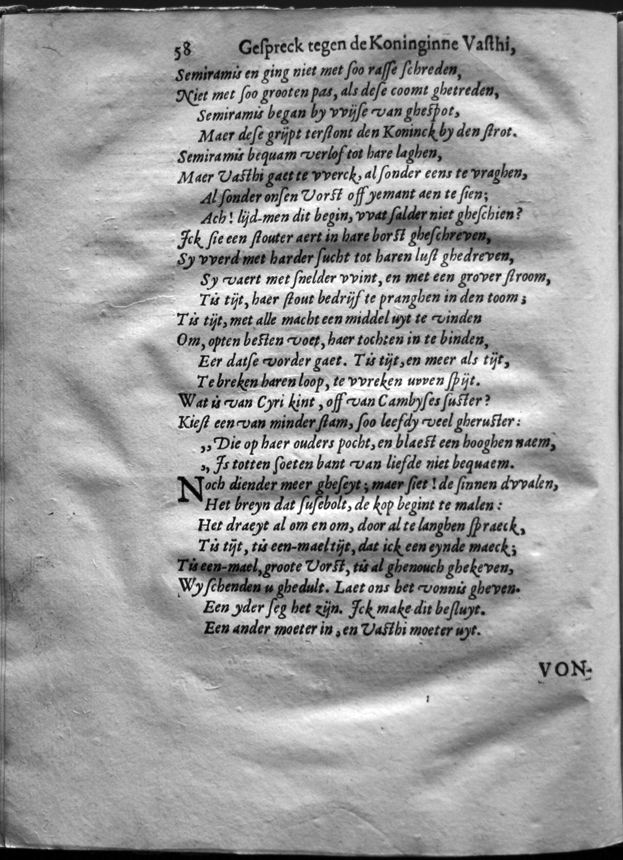 58 Geſpreck tegen de Koninginne Vaſthi,
Semiramis en ging niet met ſoo raſſe ſchreden,
Niet met ſoo grooten pas, als deſe coomt ghetreden,
Semiramis began by vvijſe van gheſpot,
Maer deſe grijpt terſtont den Koninck by den ſtrot.
Semiramis bequam verlof tot hare laghen,
Maer Vaſthi gaet te vverck, al ſonder eens te vraghen,
Al ſonder onſen Vorſt off yemant aen te ſien;
Ach! lijd-men dit begin, vvat ſalder niet gheſchien?
Jck ſie een ſtouter aert in hare borſt gheſchreven,
Sy vverd met harder ſucht tot haren luſt ghedreven,
Sy vaert met ſnelder vvint, en met een grover ſtroom,
Tis tijt, haer ſtout bedrijf te pranghen in den toom;
Tis tijt, met alle macht een middel uyt te vinden
Om, opten beſten voet, haer tochten in te binden,
Eer datſe vorder gaet. Tis tijt, en meer als tijt,
Te breken haren loop, te vvreken uvven ſpijt.
Wat is van Cyri kint, off van Cambyſes ſuſter?
Kieſt een van minder ſtam, ſoo leefdy veel gheruſter:
,,Die op haer ouders pocht, en blaeſt een hooghen naem,
,, Js totten ſoeten bant van liefde niet bequaem.
Noch diender meer gheſeyt; maer ſiet! de ſinnen dvvalen,
Het breyn dat ſuſebolt, de kop begint te malen:
Het draeyt al om en om, door al te langhen ſpraeck,
Tis tijt, tis een-mael tijt, dat ick een eynde maeck;
Tis een-mael, groote Vorſt, tis al ghenouch ghekeven,
Wy ſchenden u ghedult. Laet ons het vonnis gheven.
Een yder ſeg het zijn. Jck make dit beſluyt.
Een ander moeter in, en Vaſthi moeter uyt.
VON-